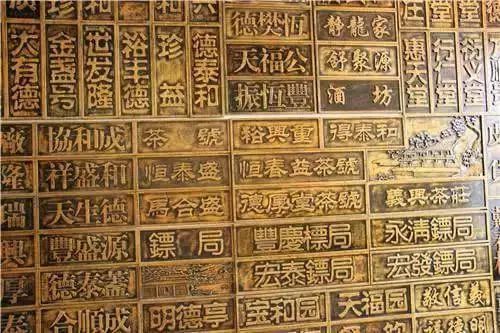 大有德
金盏号
世发隆
裕丰德
珍益
德泰和
德樊恆 静龍家
天福公 舒聚源
振恆豐 酒坊
行仁堂
協和成 茶號 裕興重 得泰和
隆 祥盛和 恒泰盛 恒春益茶號
瑞 天生德 馬合盛 德厚堂茶號 義興茶莊
興 豐盛源 鏢局 豐慶標局 永清鏢局
厚 德泰蓋 宏泰鏢局 宏發鏢局
春 合順成 明德亨 宝和园 天福园 敬信義